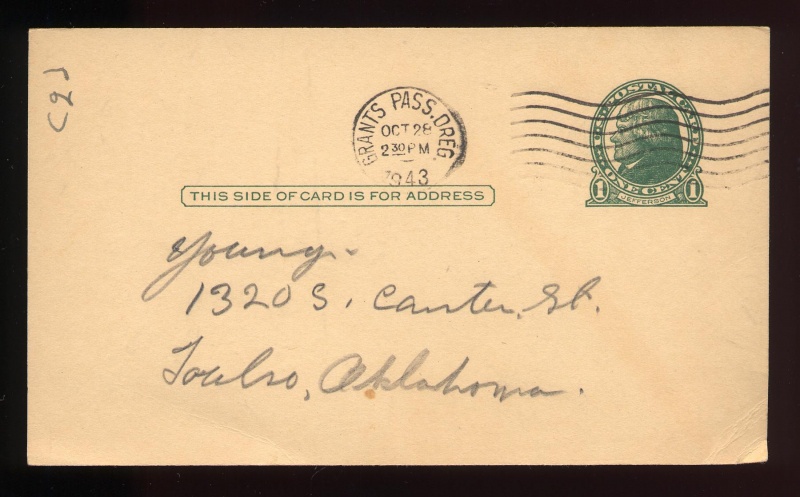 (9)
GRANTS PASS. OREG.
OCT 28
2 30 PM
1943
U.S. POSTAL CARD
1 ONE CENT 1
JEFFERSON
THIS SIDE OF CARD IS FOR ADDRESS
Young.
1320 S. Canter St.
Toulso, Oklahoma.